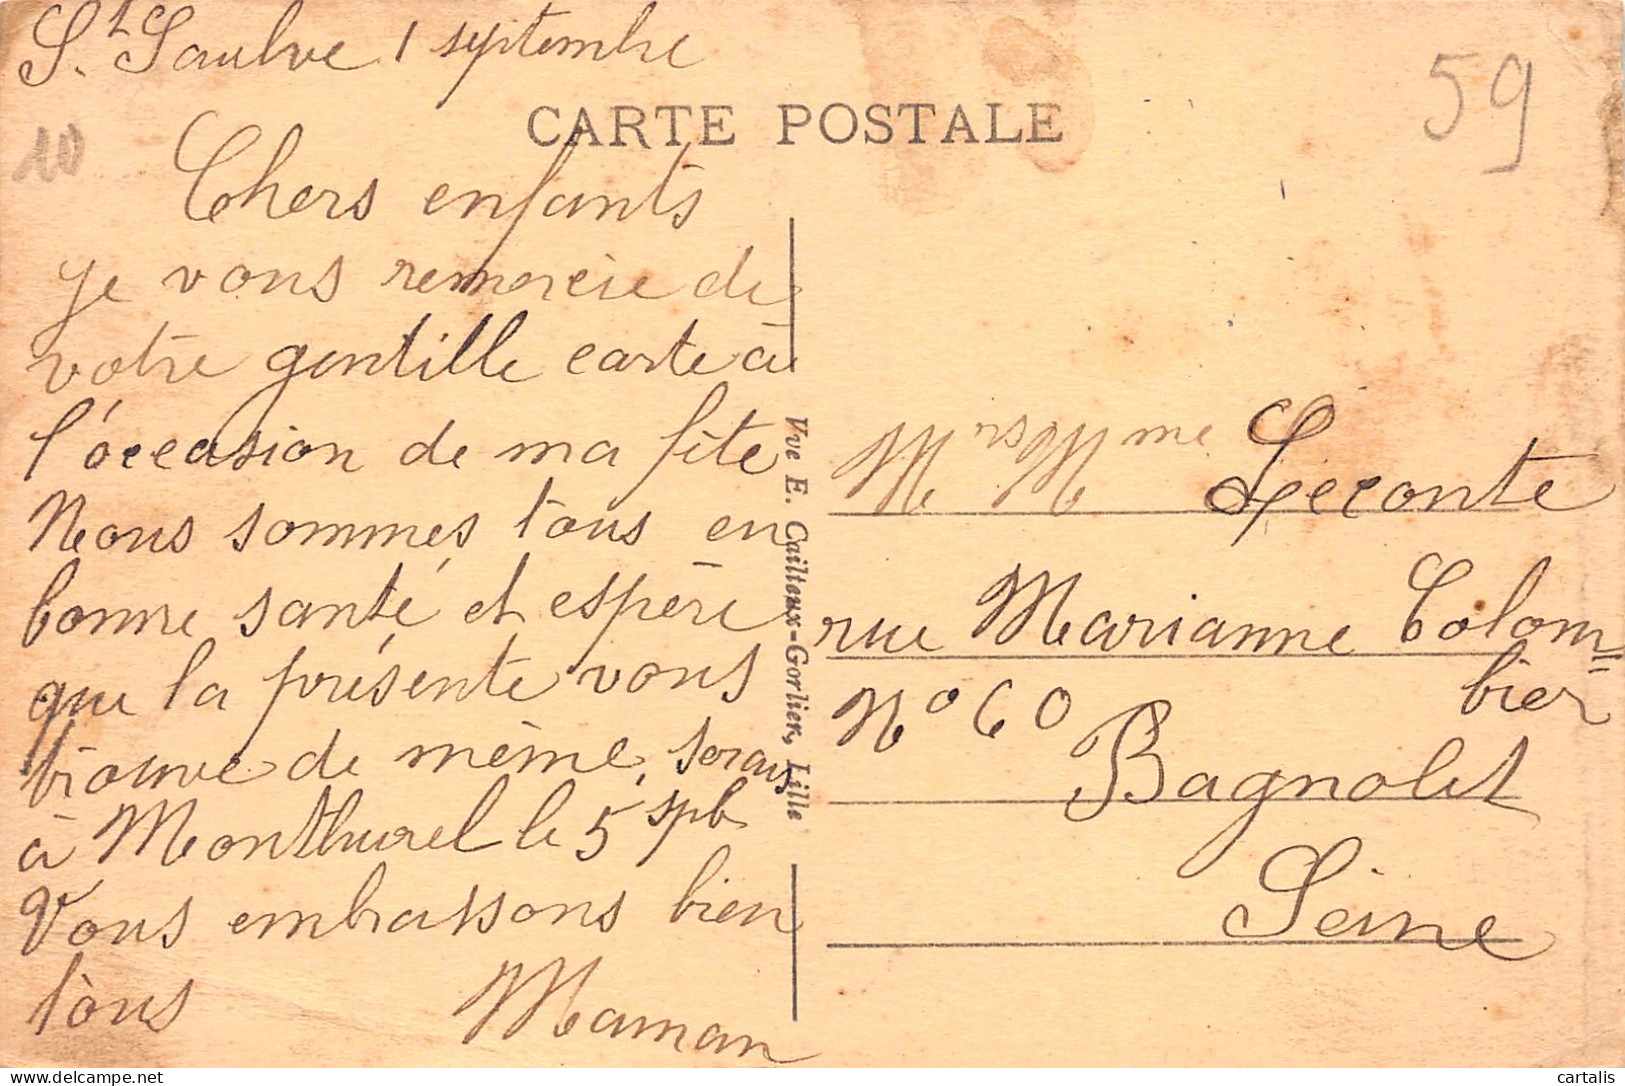 St Saulve 1 septembre
59
10
CARTE POSTALE
Chers enfants
je vous remercie de
votre gentille carte à
l'occasion de ma fête
Nous sommes tous en
bonne santé et espère
que la présente vous
trouve de même, serais
à Monthurel le 5 spb
Vous embrassons bien
tous
Maman
Vve E. Cailteux-Gorlier, Lille
Mrs Mme Leconte
rue Marianne Colom=
bier
No 60
Bagnolet
Seine
cartalis